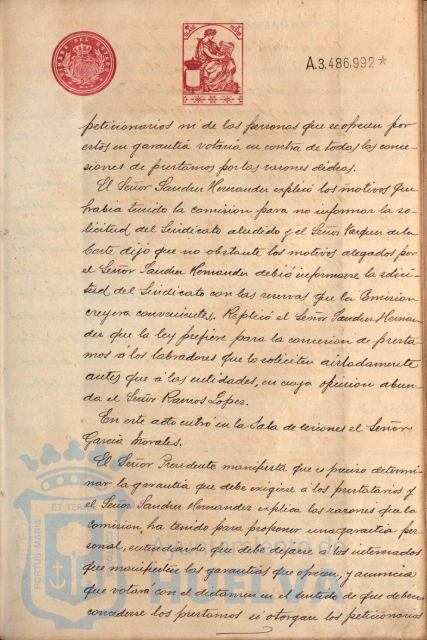 TIMBRE DEL ESTADO
A.3.486.992*
peticionarios ni de las personas que se ofrecen por
estos en garantia votaria en contra de todas las conce-
siones de prestamos por las razones dichas.
El Señor Sanchez Hernandez explicó los motivos que
habia tenido la comision para no informar la so-
licitud del Sindicato aludido y el Señor Vazquez de la
Corte dijo que no obstante los motivos alegados por
el Señor Sanchez Hernandez debió informarse la solici-
tud del Sindicato con las reservas que la Comision
creyera convenientes. Replicó el Señor Sanchez Hernan-
dez que la ley prefiere para la concesion de presta-
mos á los labradores que lo soliciten aisladamente
antes que á las entidades, en cuya opinion abun-
da el Señor Ramos Lopez.
En este acto entró en la Sala de sesiones el Señor
Garcia Morales.
El Señor Presidente manifiesta que es preciso determi-
nar la garantia que debe exigirse á los prestatarios y
el Señor Sanchez Hernandez explica las razones que la
comision, ha tenido para proponer una garantia per-
sonal, entendiendo que debe dejarse á los interesados
que manifiesten las garantias que ofrecen, y anuncia
que votará con el dictamen en el sentido de que deben
concederse los prestamos si otorgan los peticionarios
PORTUS MARIS ET TERRAE
Ayuntamiento de
HUELVA